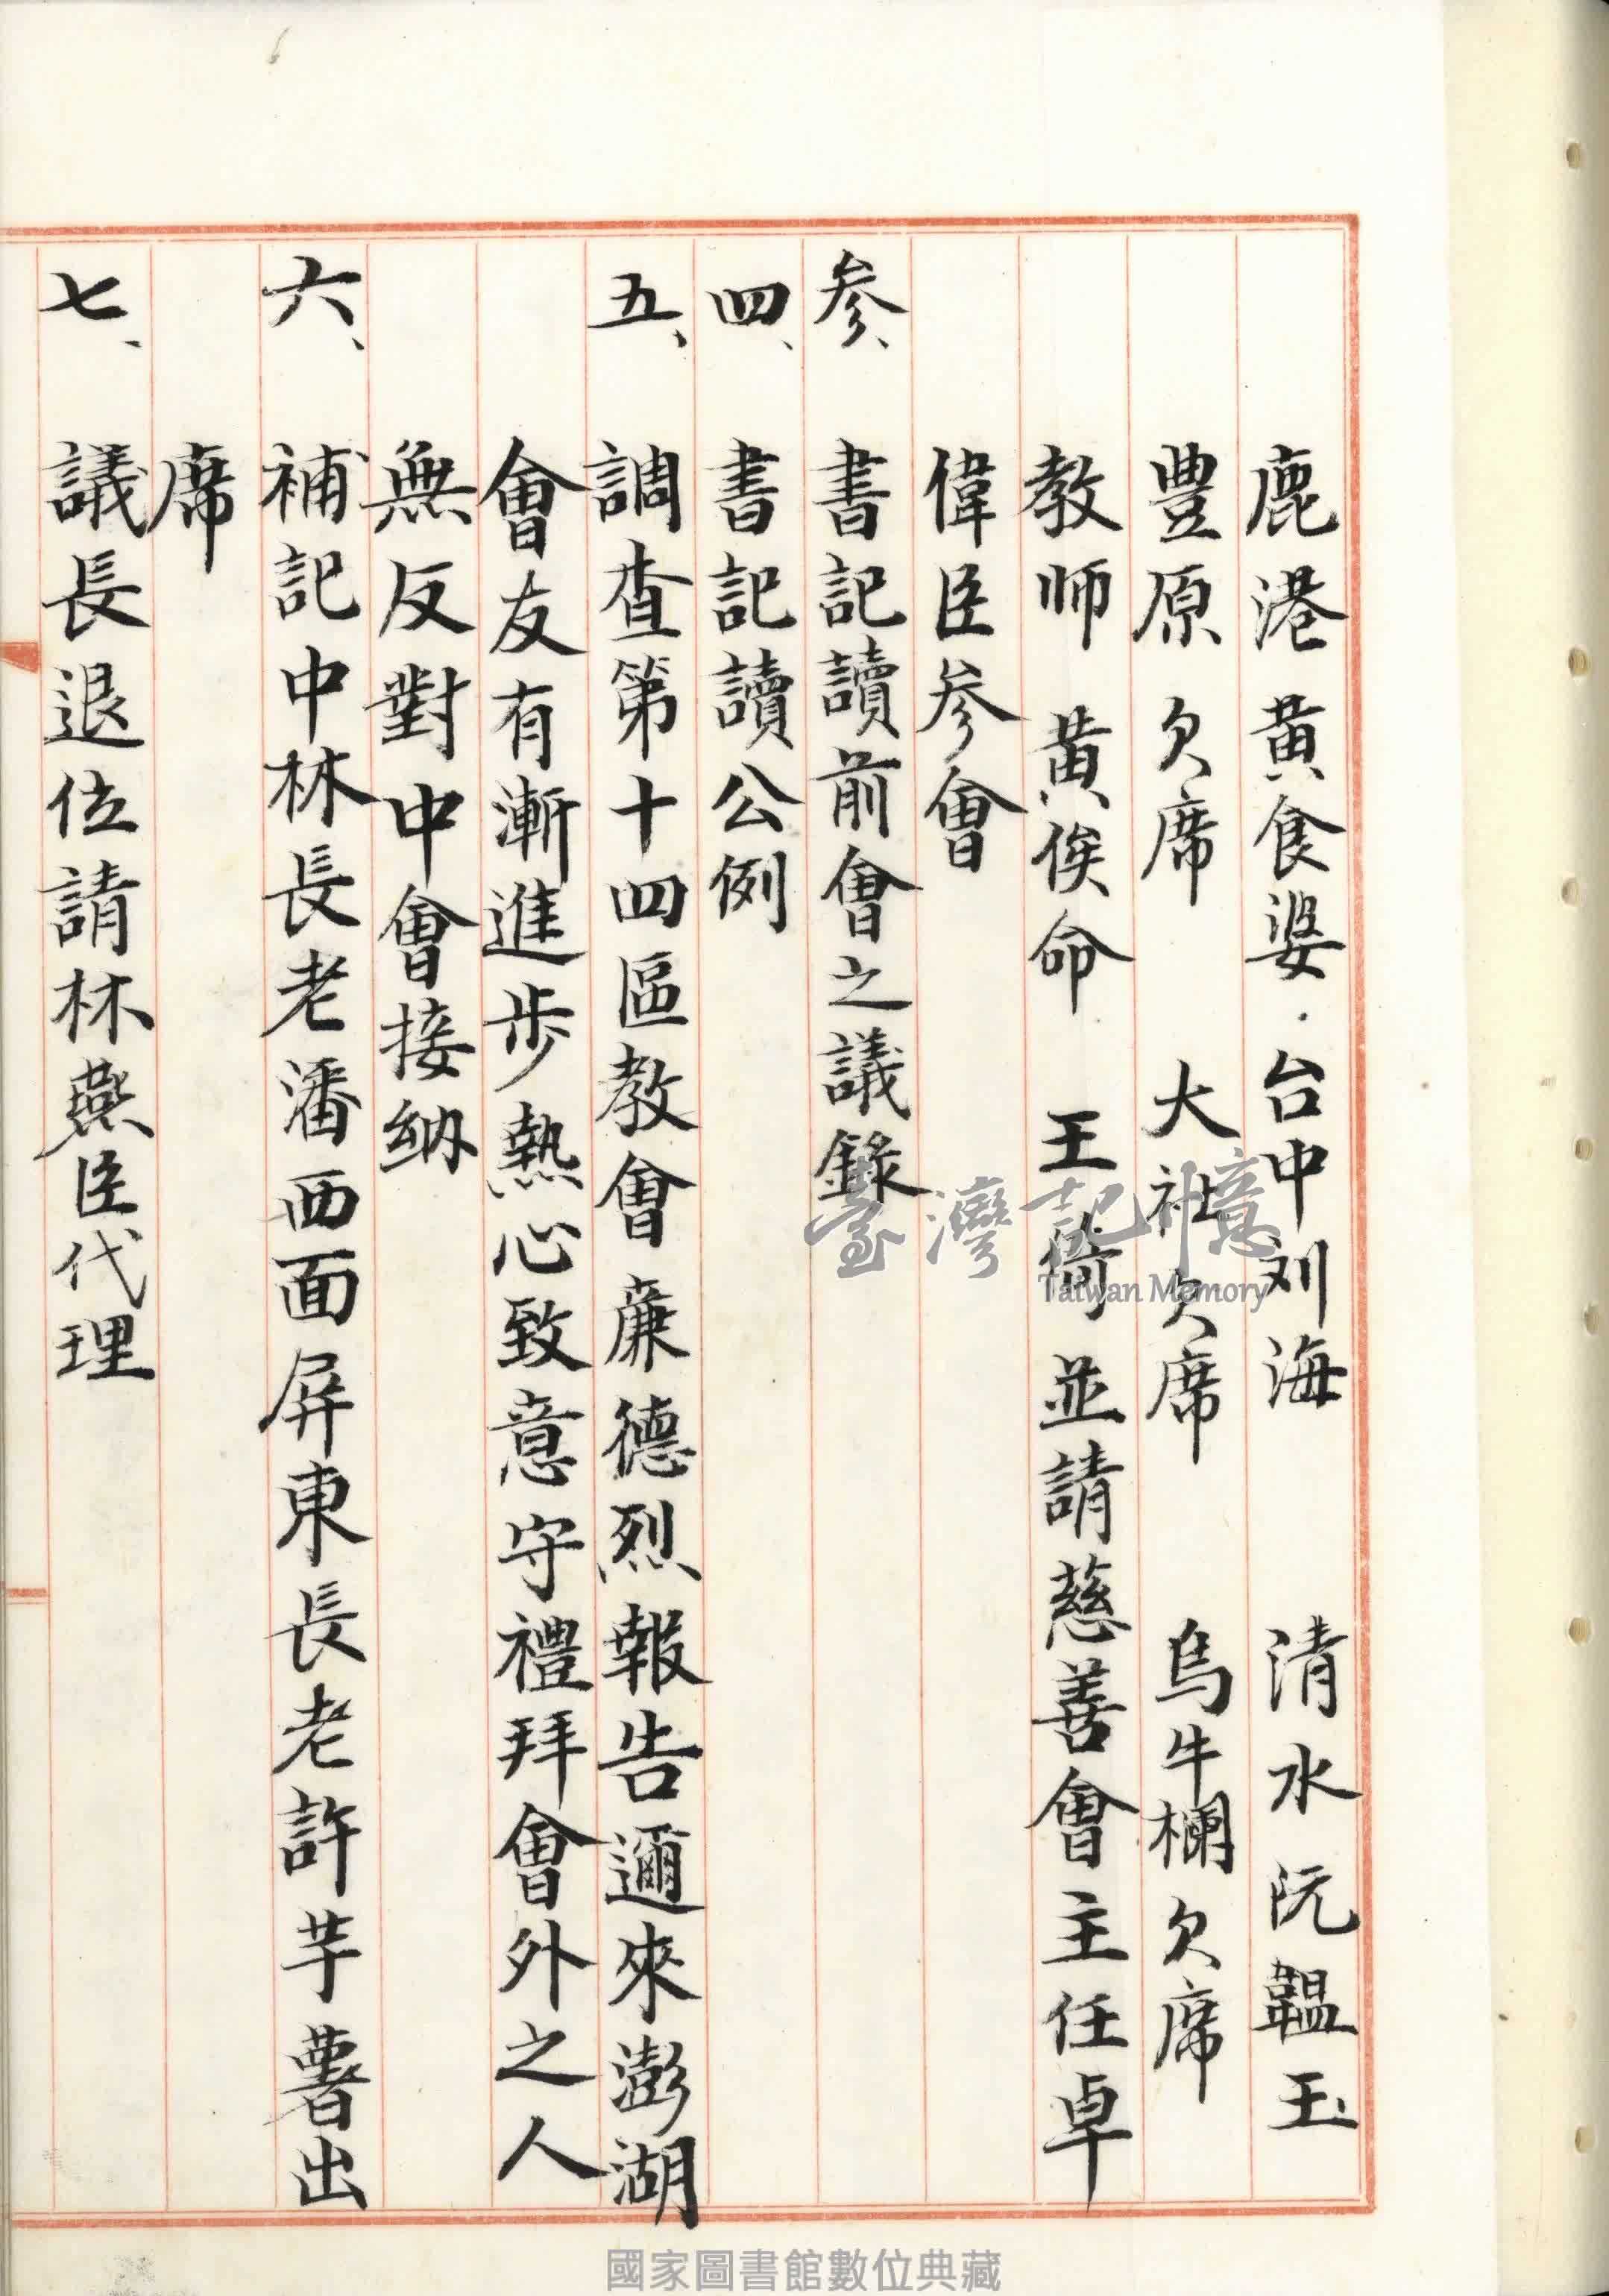 鹿港 黃食婆．台中刘海 清水 阮韞玉
豊原 欠席 大社欠席 烏牛欄欠席
教师 黃俟命 王倚 並請慈善會主任卓
偉臣參會
參、書記讀前會之議錄
四、書記讀公例
五、調查第十四區教會廉德烈報告邇來澎湖
會友有漸進步熱心致意守禮拜會外之人
無反對中會接納
六、補記中林長老潘西面屏東長老許芋薯出
席
七、議長退位請林燕臣代理
臺灣記憶
Taiwan Memory
國家圖書館數位典藏